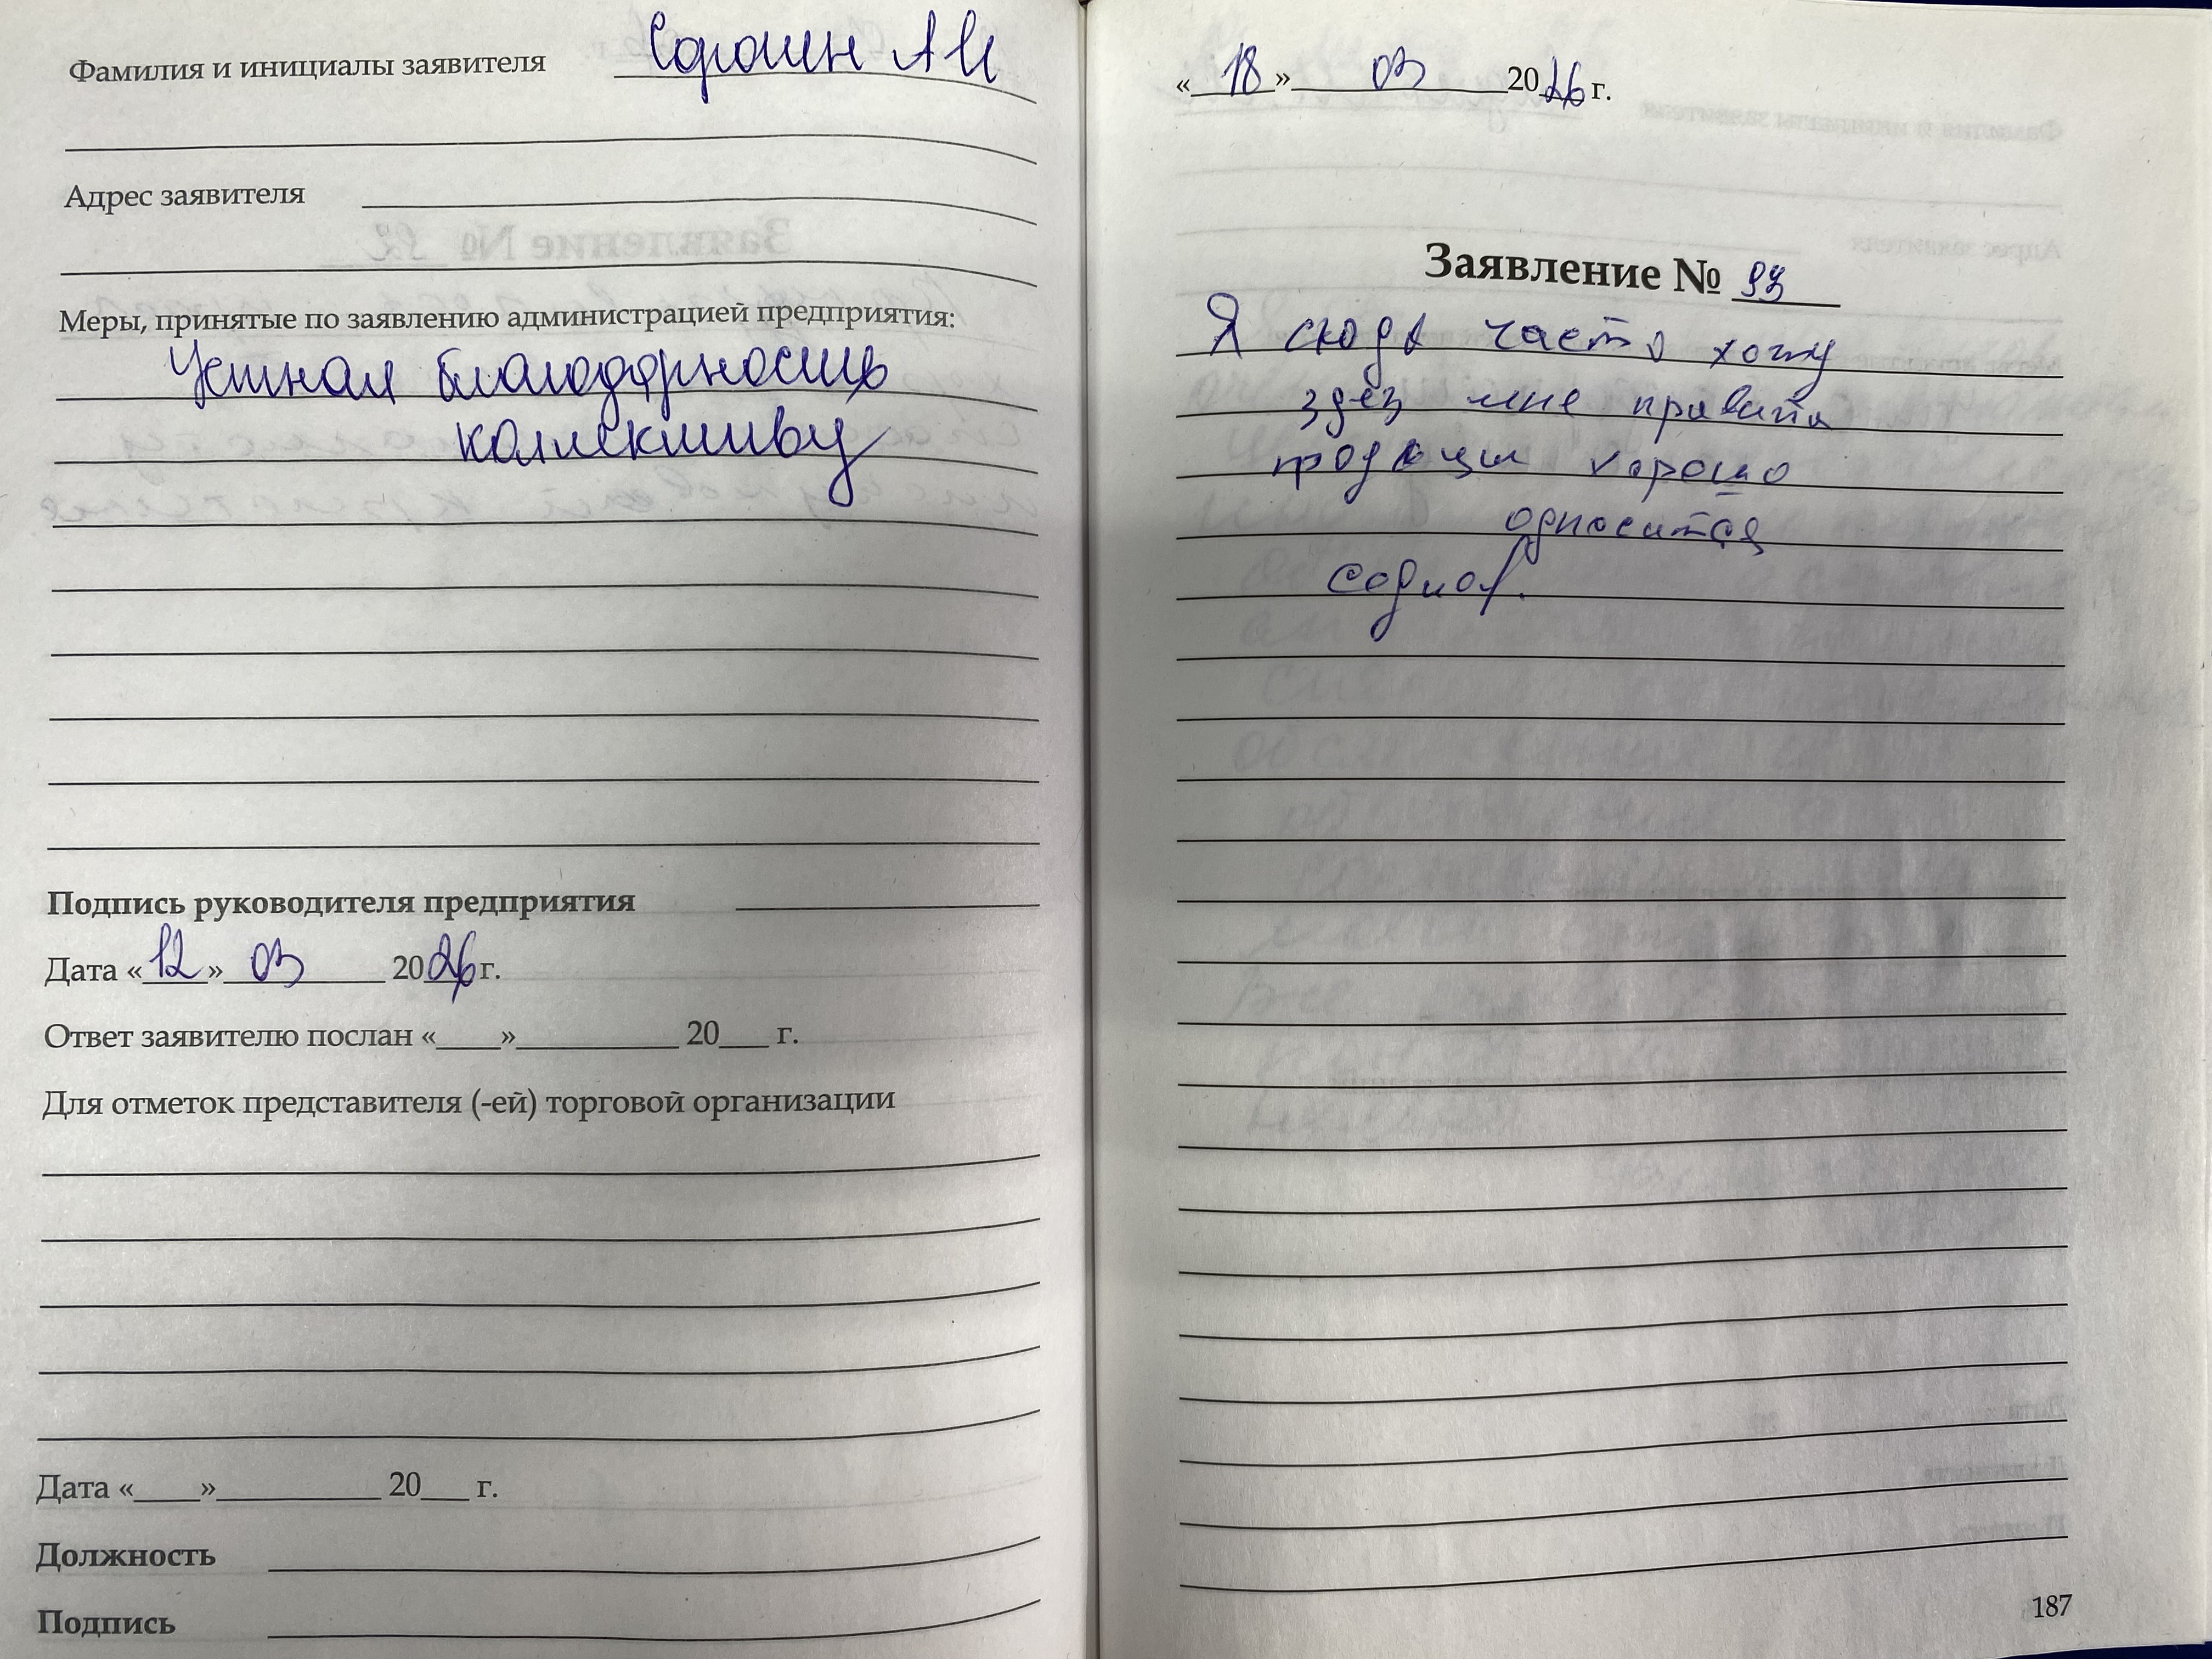 Фамилия и инициалы заявителя Сорокин АИ
Адрес заявителя
Меры, принятые по заявлению администрацией предприятия:
Устная благодарность
коллективу
Подпись руководителя предприятия
Дата «12» 03 2026г.
Ответ заявителю послан «____»__________ 20___ г.
Для отметок представителя (-ей) торговой организации
Дата «____»__________ 20___ г.
Должность
Подпись
«18» 03 2026 г.
Заявление № 93
Я сюда часто хожу
здез мне
хорошо
односится
187